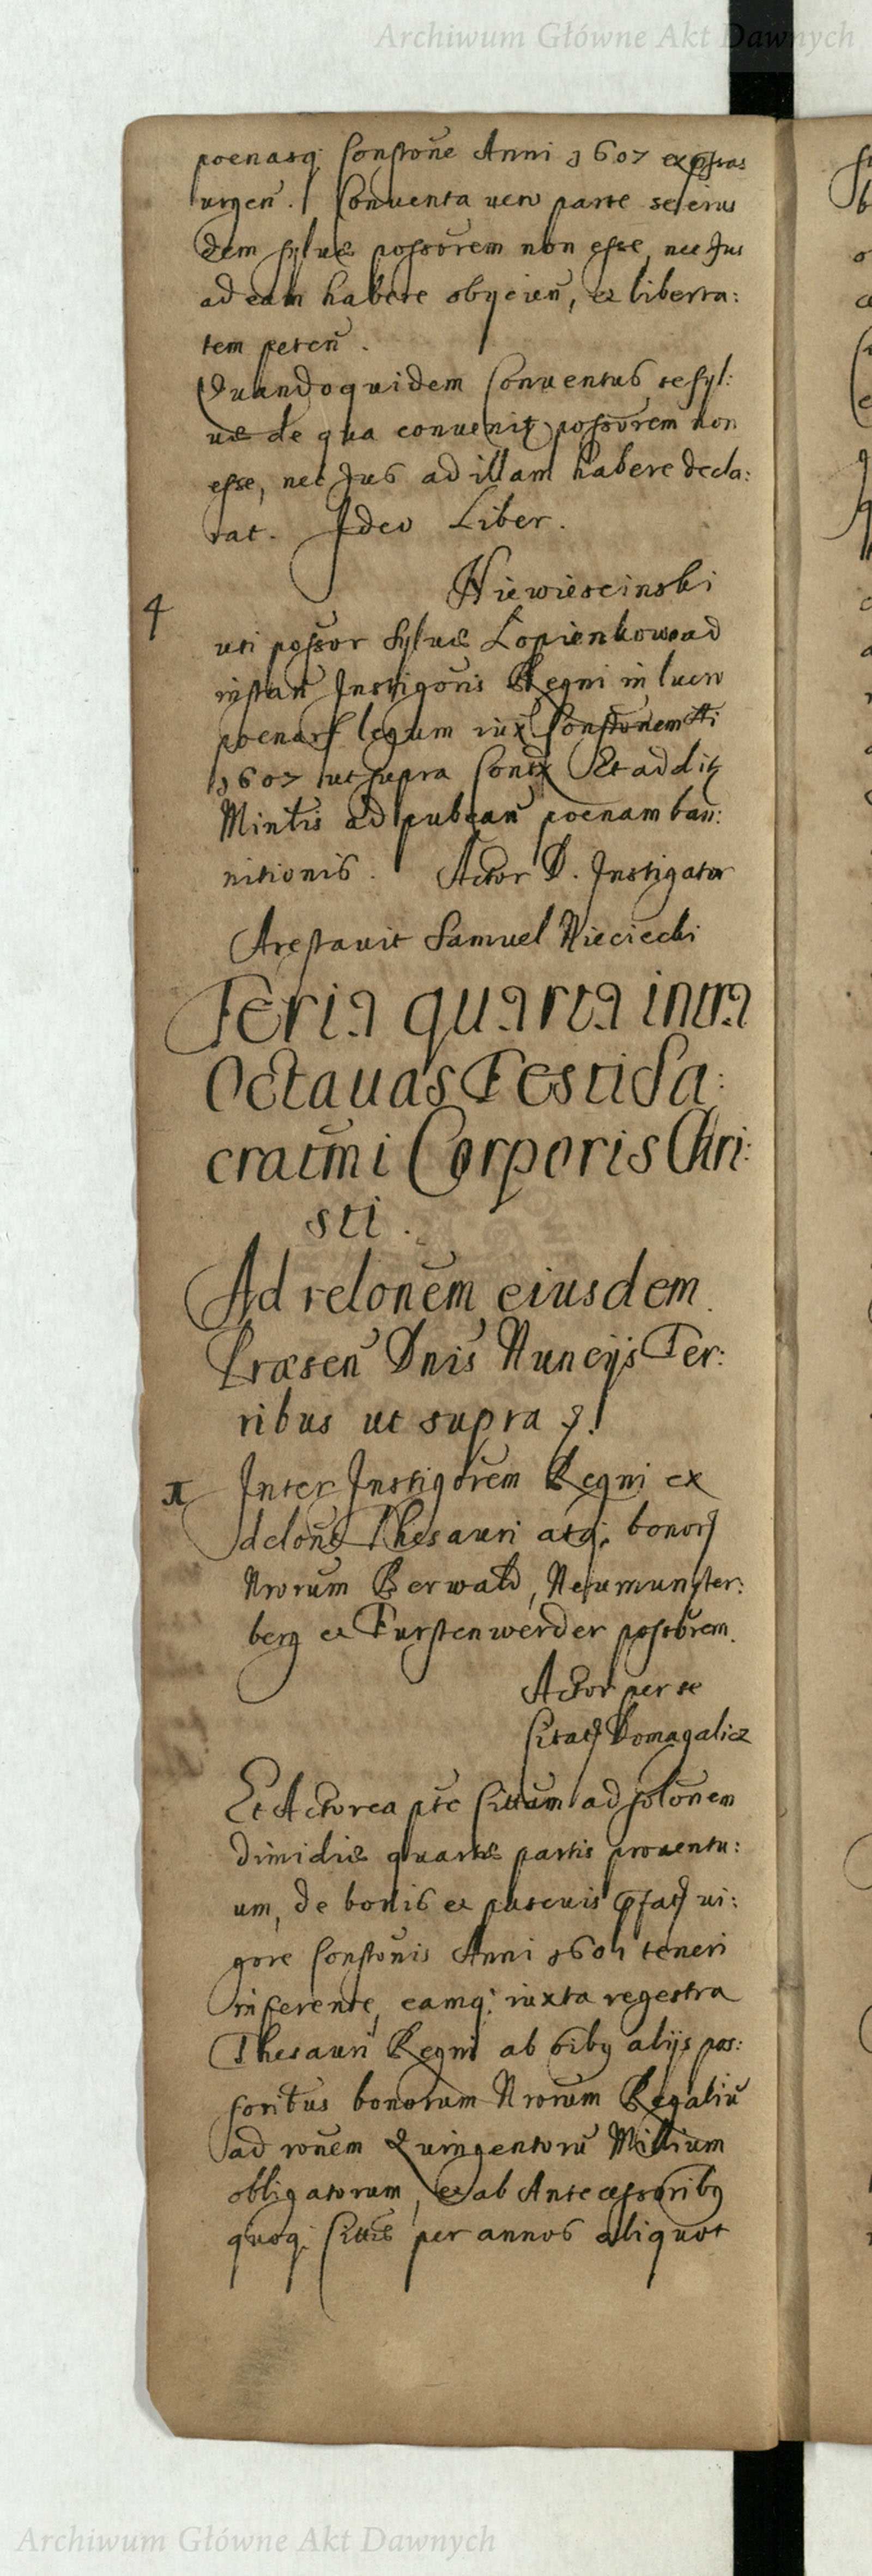 Archiwum Główne Akt Dawnych
poenasq; Constone Anni 1607 expssas
urgen. Conventa vero parte se eius
dem sylvæ possorem non esse, nec Jus
ad eam habere obijcien, et liberta:
tem peten.
Quandoquidem Conventus se syl:
væ de qua convenit possorem non
esse, nec Jus ad illam habere decla:
rat. Ideo Liber.
4
Niewiescinski
uti possor sylvæ Lopienkowo ad
instan Instigoris Regni in lucro
poenar legum iux Constonem Ai
1607 ut supra Cont Et addit
Mintis ad pubcan poenam ban:
nitionis. Actor D. Instigator
Arestavit Samuel Nieciecki
Feria quarta intra
Octavas Festi Sa:
cratmi Corporis Chri:
sti.
Ad relonem eiusdem
Præsen Dnis Nuncijs Ter:
ribus ut supra
Inter Instigorem Regni ex
delone Thesauri atq; bonor
Nrorum Berwald, Neumunster:
berg et Furstenwerder possorem.
Actor per se
Citat Domagalicz
Et Actorea pte Cittum ad solonem
dimidiæ quartæ partis proventu:
um, de bonis et pascuis pfat vi:
gore Constonis Anni teneri
inferente, eamq; iuxta regestra
Thesauri Regni ab oibq alijs pos:
soribus bonorum Nrorum Regaliu
ad ronem Quingentoru Millium
obligatorum, et ab Antecessoribq
quoq; Cittis per annos aliquot
Archiwum Główne Akt Dawnych